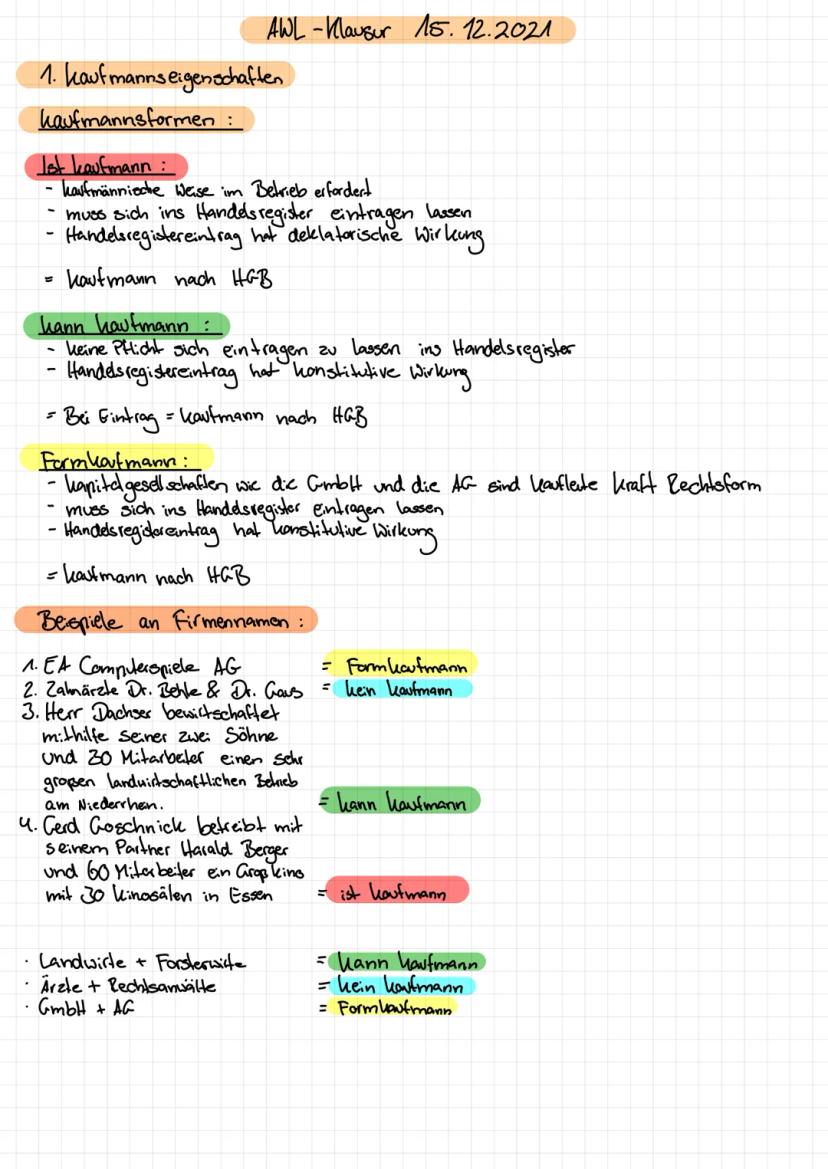 AWL-Klausur 15.12.2021
1. Kaufmannseigenschaften
Kaufmannsformen :
Ist Kaufmann :
- kaufmännische Weise im Betrieb erfordert
- muss sich ins Handelsregister eintragen lassen
- Handelsregistereintrag hat deklatorische Wirkung
= Kaufmann nach HGB
Kann Kaufmann :
- keine Pflicht sich eintragen zu lassen ins Handelsregister
- Handelsregistereintrag hat konstitutive Wirkung
= Bei Eintrag = Kaufmann nach HGB
Formkaufmann :
- Kapitalgesellschaften wie die GmbH und die AG sind Kaufleute kraft Rechtsform
- muss sich ins Handelsregister eintragen lassen
- Handelsregistereintrag hat konstitutive Wirkung
= Kaufmann nach HGB
Beispiele an Firmennamen :
1. EA Computerspiele AG = Formkaufmann
2. Zahnärzte Dr. Behle & Dr. Gaus = kein Kaufmann
3. Herr Dachser bewirtschaftet
mithilfe seiner zwei Söhne
und 30 Mitarbeiter einen sehr
großen landwirtschaftlichen Betrieb
am Niederrhein. = kann Kaufmann
4. Gerd Goschnick betreibt mit
seinem Partner Harald Berger
und 60 Mitarbeiter ein Großkino
mit 30 Kinosälen in Essen = ist Kaufmann
· Landwirte + Forsterwirte = kann Kaufmann
· Ärzte + Rechtsanwälte = kein Kaufmann
· GmbH + AG = Formkaufmann